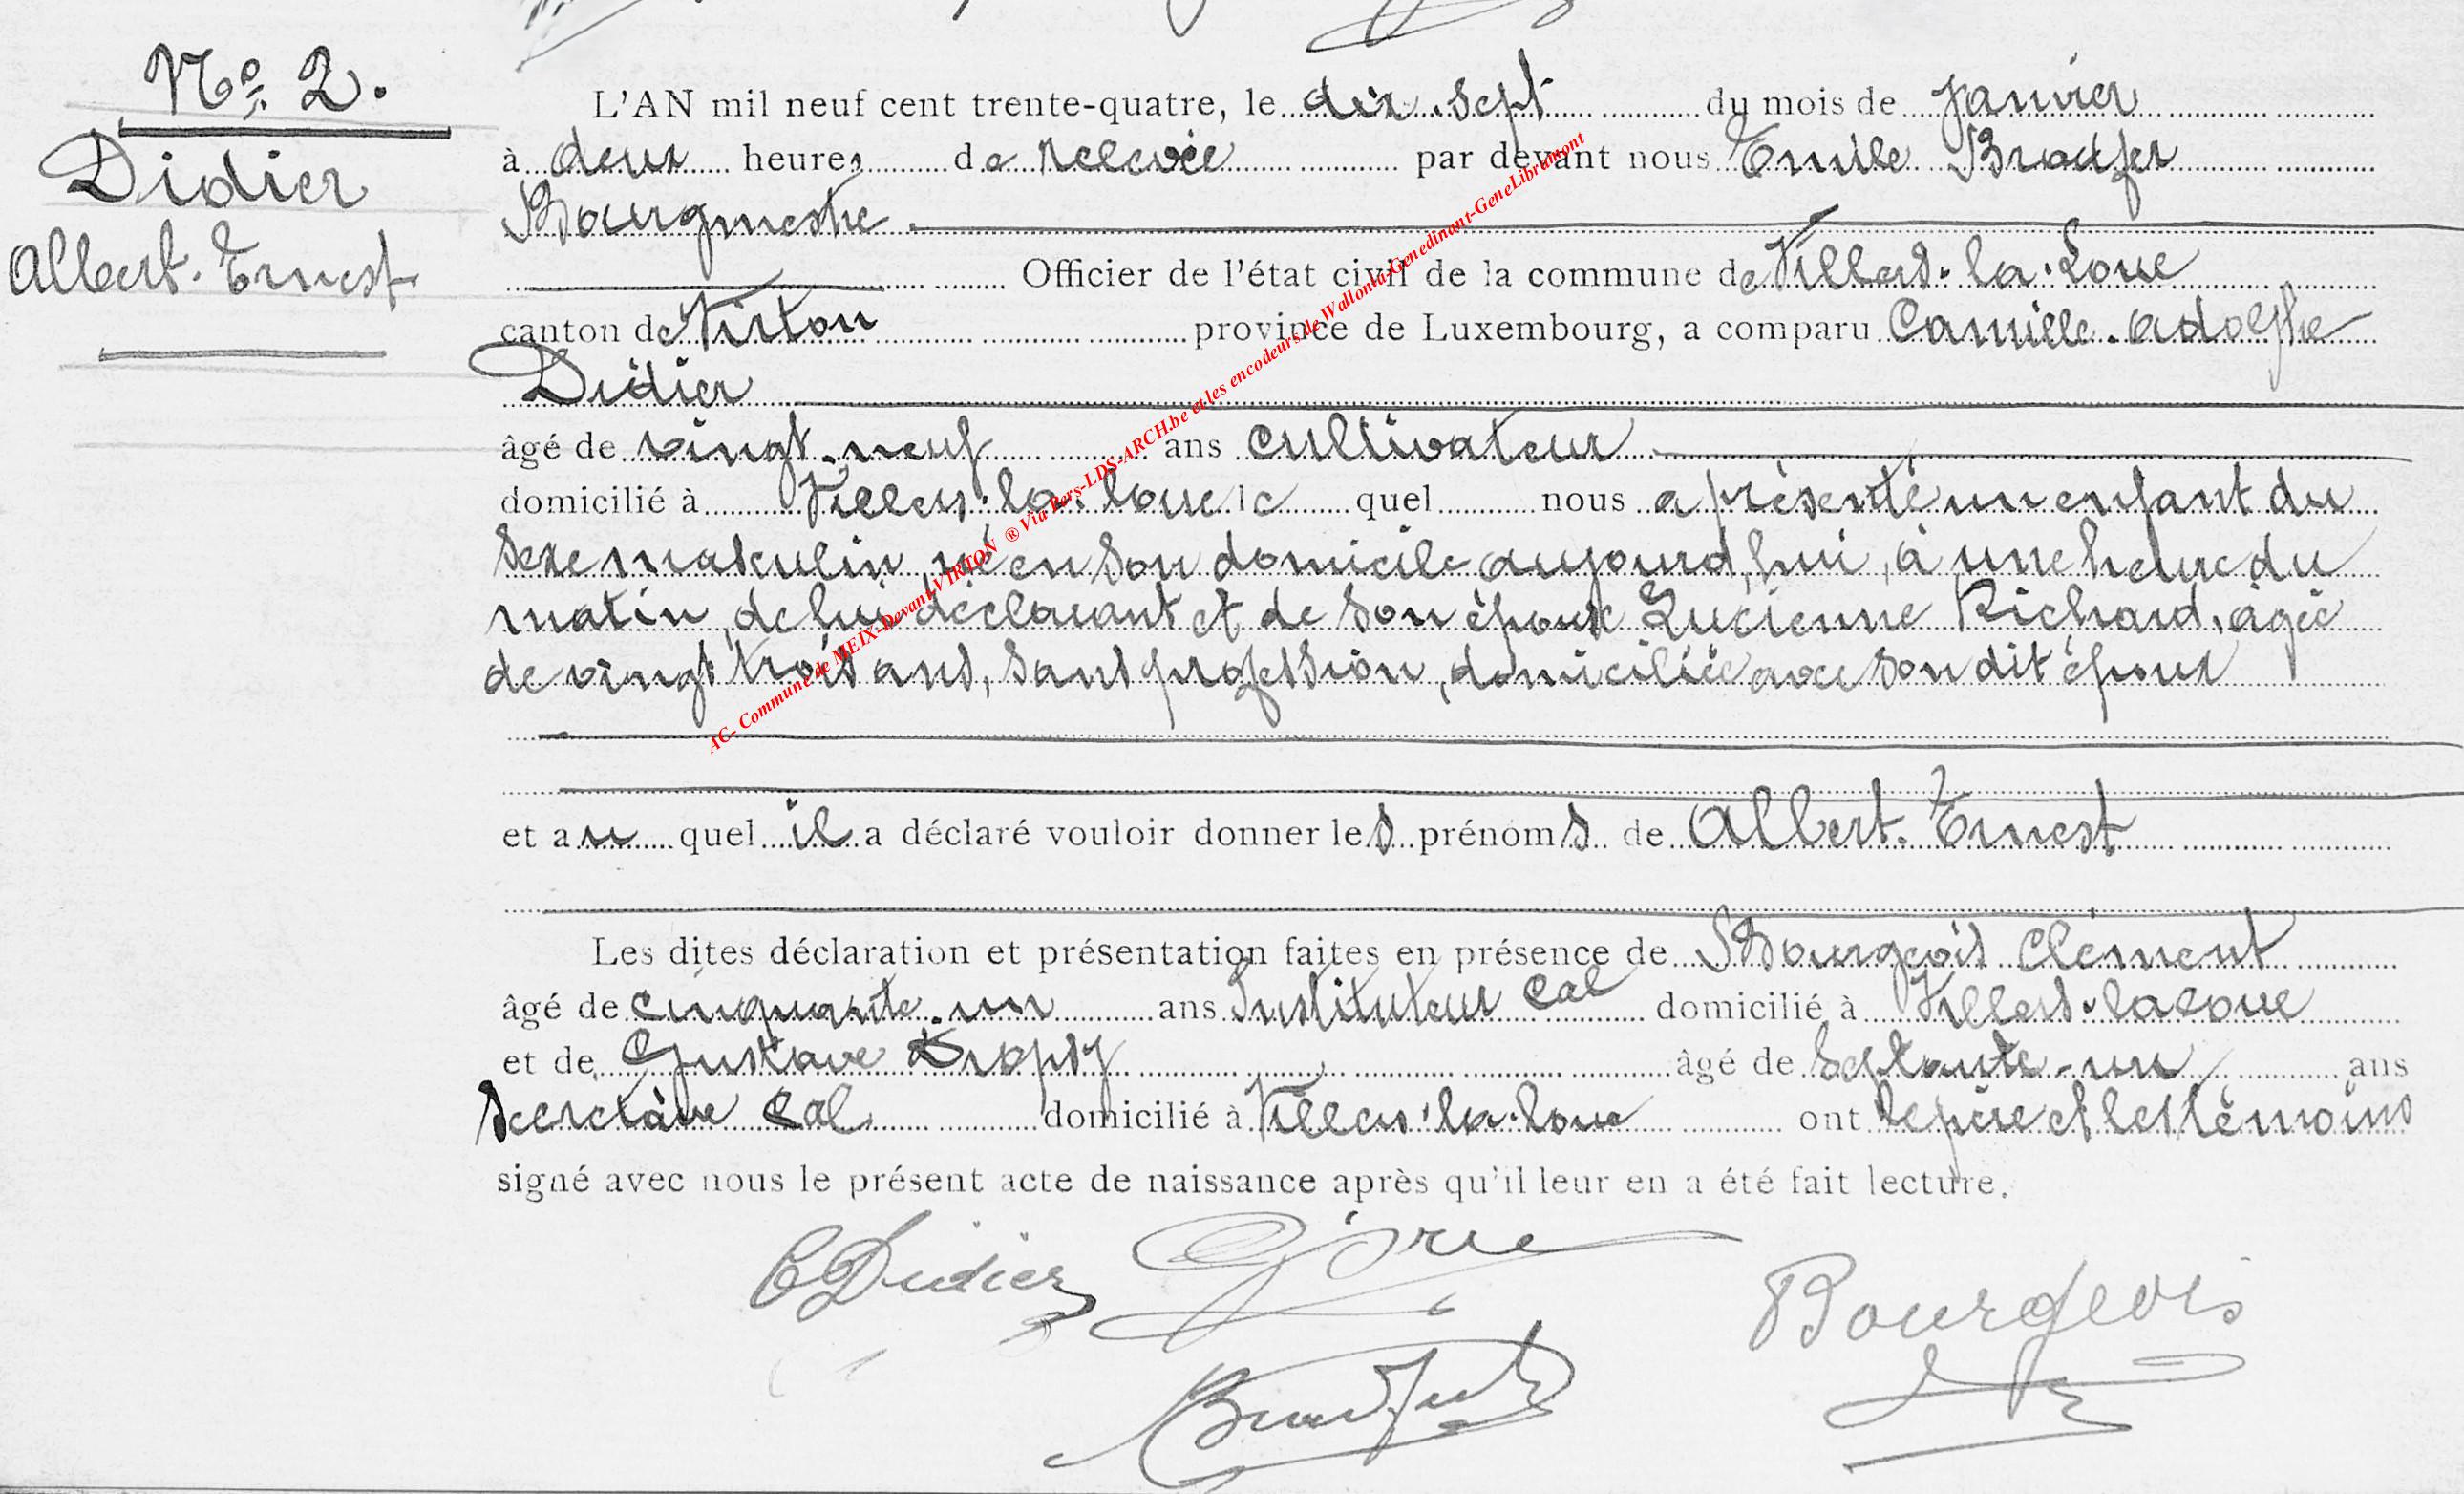 No. 2.
Didier
Albert. Ernest
L'AN mil neuf cent trente-quatre, le dix. sept du mois de Janvier
à deux heures de relevée par devant nous Emile Bradfer
Bourgmestre
Officier de l'état civil de la commune de Villers-la-Loue
canton de Virton province de Luxembourg, a comparu Camille. Adolphe
Didier
âgé de vingt-neuf ans cultivateur
domicilié à Villers-la-loue le quel nous a présenté un enfant du
sexe masculin, né en son domicile aujourd'hui, à une heure du
matin, de lui déclarant et de son épouse Lucienne Richard, âgée
de vingt trois ans, sans profession, domiciliée avec son dit époux
et au quel il a déclaré vouloir donner les prénoms de Albert. Ernest
Les dites déclaration et présentation faites en présence de Bourgeois Clément
âgé de cinquante-un ans Instituteur cal domicilié à Villers-la loue
et de Gustave âgé de septante-un ans
secrétaire cal domicilié à Villers-la-loue ont le père et les témoins
signé avec nous le présent acte de naissance après qu'il leur en a été fait lecture.
C Didier
Bradfer
Bourgeois
AC- Commune de MEIX-Devant VIRTON ® Via Pers-LDS-ARCH.be et les encodeurs de Wallonia-Genedinant-GeneLibramont